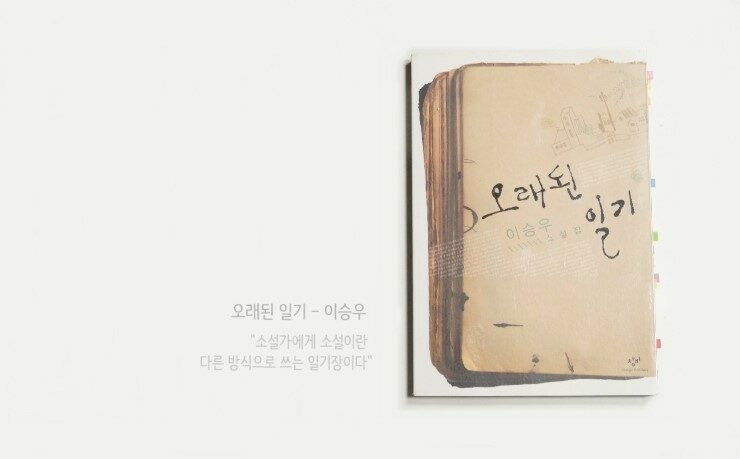 오래된
일기
이승우
소설집
창비
오래된 일기 - 이승우
"소설가에게 소설이란
다른 방식으로 쓰는 일기장이다"